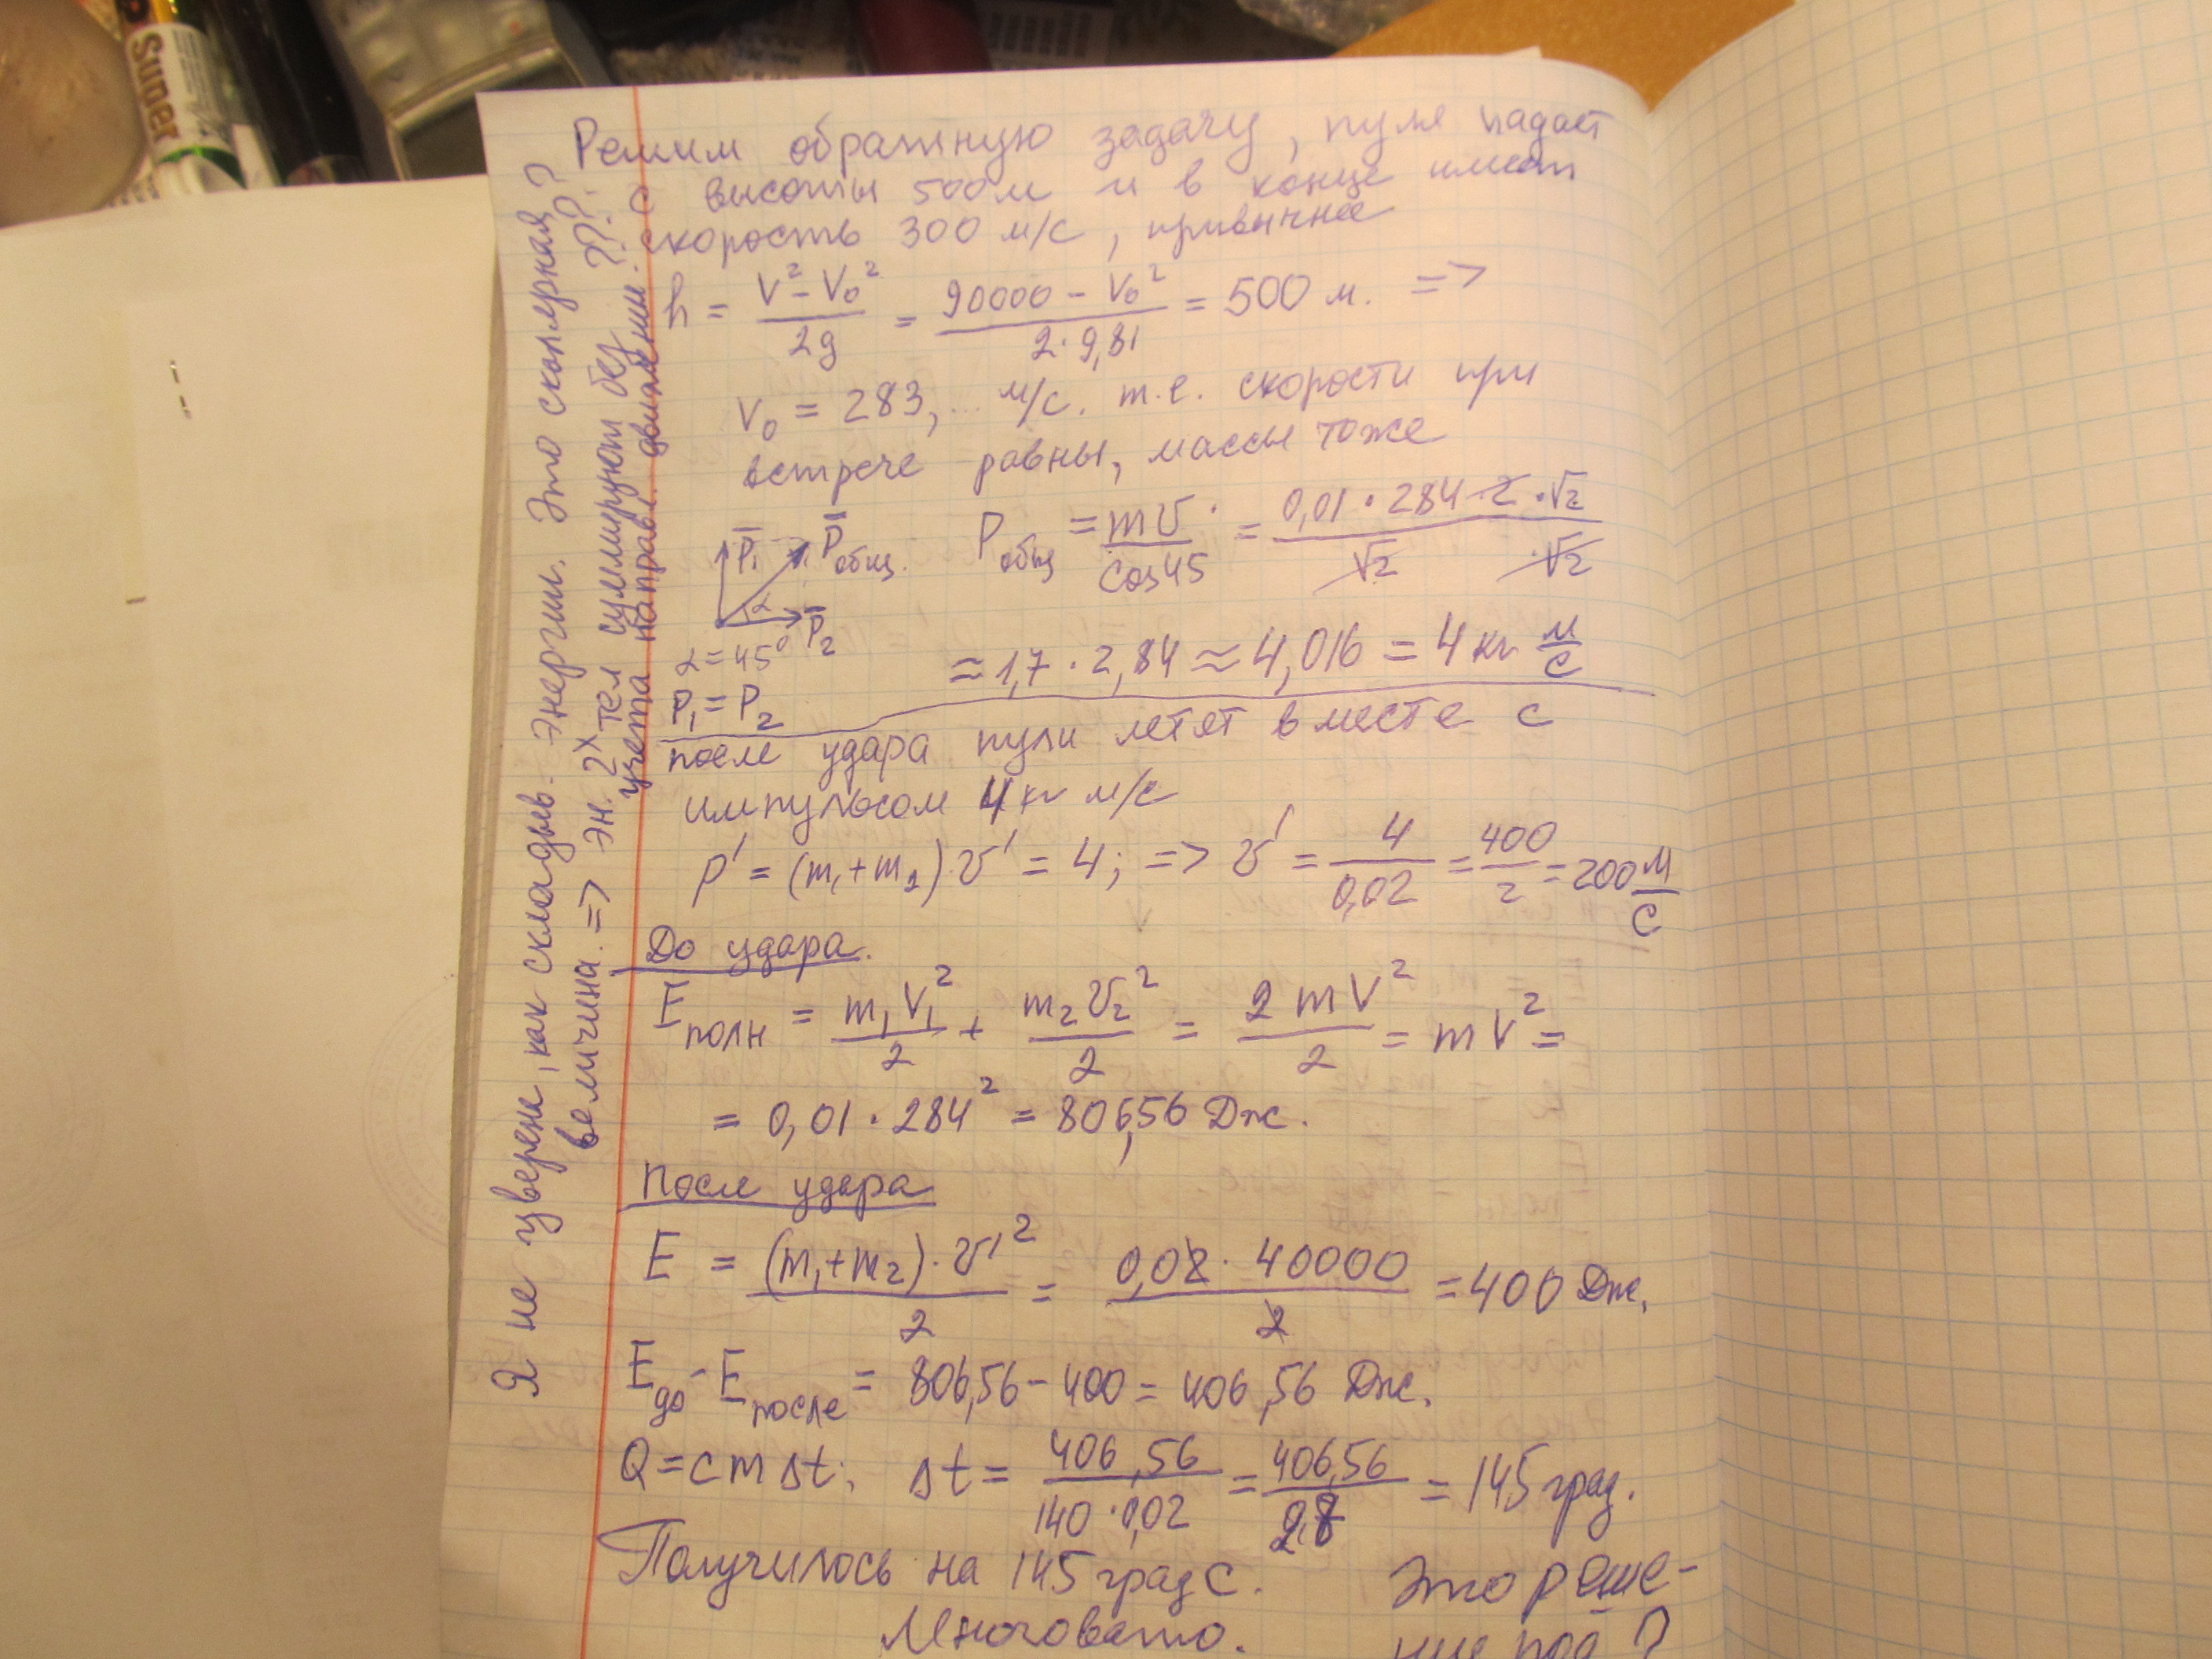 Super
Решим обратную задачу, пуля падает
с высоты 500м и в конце имеет
скорость 300 м/с, привычнее
h = V² - V₀² / 2g = 90000 - V₀² / 2·9,81 = 500 м. =>
V₀ = 283,... м/с. т.е. скорости при
встрече равны, массы тоже
P̅₁ P̅общ. P̅₂
α
α = 45°
P₁ = P₂
Pобщ = mv · / cos45 = 0,01 · 284 · 2 · √2 / √2 · √2
≈ 1,7 · 2,84 ≈ 4,016 = 4 кг м/с
после удара пули летят вместе с
импульсом 4 кг м/с
p' = (m₁+m₂)·v' = 4; => v' = 4 / 0,02 = 400 / 2 = 200 м/с
До удара.
Eполн = m₁V₁² / 2 + m₂v₂² / 2 = 2mV² / 2 = mV² =
= 0,01 · 284² = 806,56 Дж.
После удара
E = (m₁+m₂)·v'² / 2 = 0,02 · 40000 / 2 = 400 Дж.
Eдо - Eпосле = 806,56 - 400 = 406,56 Дж.
Q = cmΔt; Δt = 406,56 / 140 · 0,02 = 406,56 / 2,8 = 145 град.
Получилось на 145 град С.
Многовато.
Это реше-
ние
Я не уверена, как складыв. энергии. Это скалярная?
величина. => эн. 2х тел суммируют без
учета направл. движения. ???